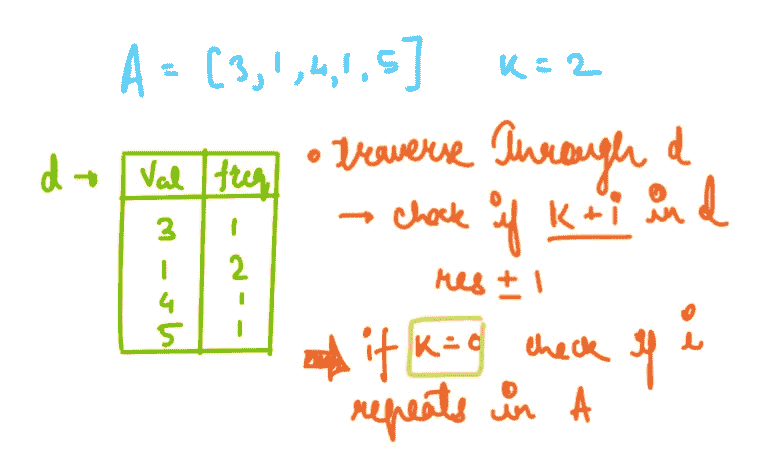 A = [3, 1, 4, 1, 5] K = 2
d → Val freq
3 1
1 2
4 1
5 1
• Traverse Through d
→ check if K + i in d
res ± 1
⇒ if K = 0 check if i
repeats in A